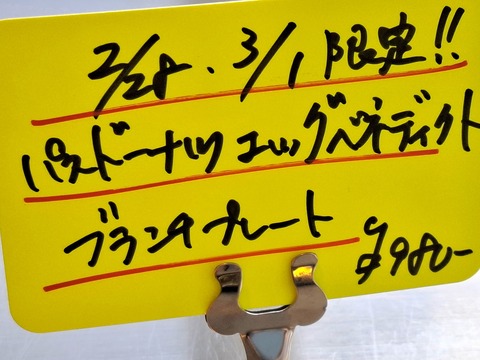 2/28.3/1限定!!
パスドーナツ エッグベネディクト
ブランチプレート
¥980-